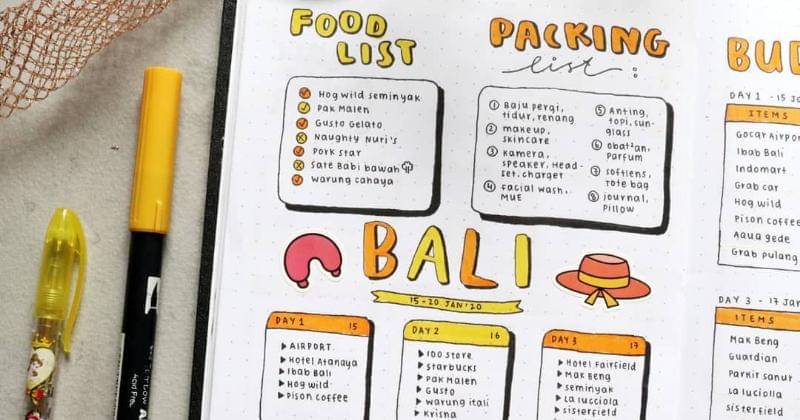 FOOD
LIST
Hog wild seminyak
Pak Malen
Gusto Gelato
Naughty Nuri's
Pork star
Sate Babi bawah
warung cahaya
PACKING
list :
1 Baju pergi,
tidur, renang
2 makeup,
skincare
3 kamera,
speaker, Head-
set, charger
4 facial wash,
MUE
5 Anting,
topi, sun-
glass
6 obat2an,
Parfum
7 softlens,
tote bag
8 journal,
Pillow
BALI
15-20 JAN '20
DAY 1 15
AIRPORT
Hotel Atanaya
Ibab Bali
Hog wild
Pison coffee
DAY 2 16
100 store
starbucks
Pak Malen
Gusto
warung itali
Krisna
DAY 3 17
Hotel Fairfield
Mak Beng
seminyak
La lucciola
sisterfield
DAY 1 - 15
ITEMS
Gocar Airpor
Ibab Bali
Indomart
Grab car
Hog wild
Pison coffee
Aqua gede
Grab pulang
DAY 3 - 17 Jan
ITEMS
Mak Beng
Guardian
Parkir sanur
La luciolla
sisterfield